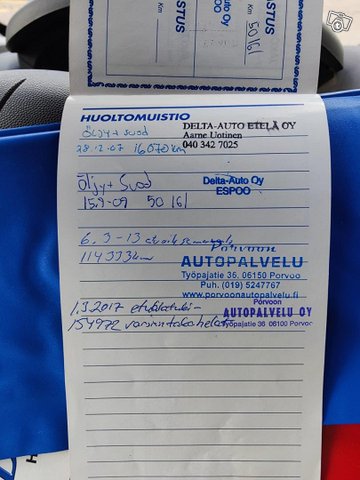 Km
50 161
Km
HUOLTOMUISTIO
Öljy + suod
DELTA-AUTO ETELÄ OY
Aarne Uotinen
28.12.07 16070 km
040 342 7025
Öljy + Suod
Delta-Auto Oy
ESPOO
15.9-09 50 161
6.3-13
Porvoon
AUTOPALVELU
Työpajatie 36, 06150 Porvoo
Puh. (019) 5247767
www.porvoonautopalvelu.fi
1.3.2017
Porvoon
AUTOPALVELU OY
Työpajatie 36 06100 Porvoo
154972